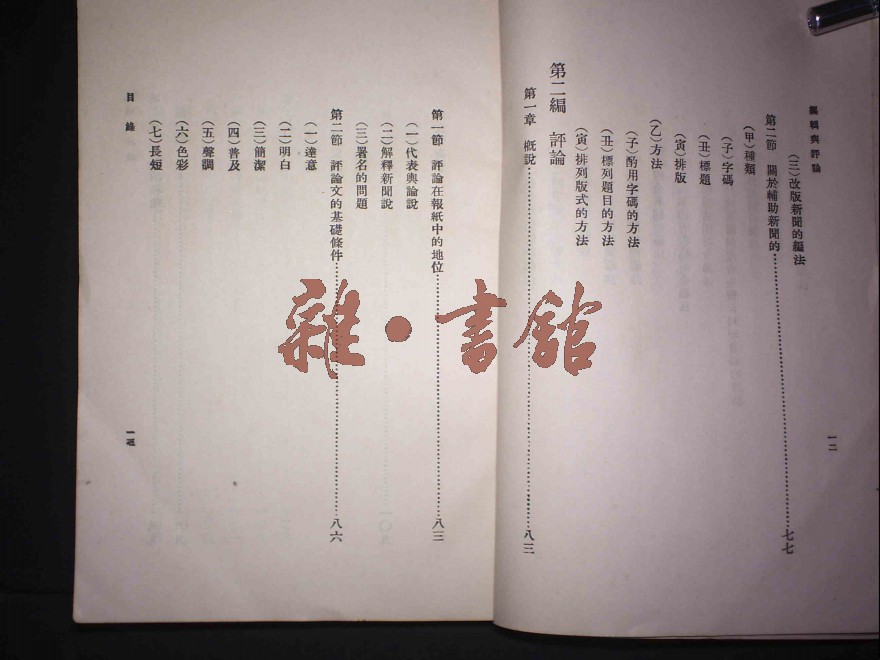 編輯與評論
(三)改版新聞的編法
第二節 關於輔助新聞的……七七
(甲)種類
(子)字碼
(丑)標題
(寅)排版
(乙)方法
(子)酌用字碼的方法
(丑)標列題目的方法
(寅)排列版式的方法
第二編 評論
第一章 概說……八三
一二
第一節 評論在報紙中的地位……八三
(一)代表輿論說
(二)解釋新聞說
(三)署名的問題
第二節 評論文的基礎條件……八六
(一)達意
(二)明白
(三)簡潔
(四)普及
(五)聲調
(六)色彩
(七)長短
目錄
雜·書館